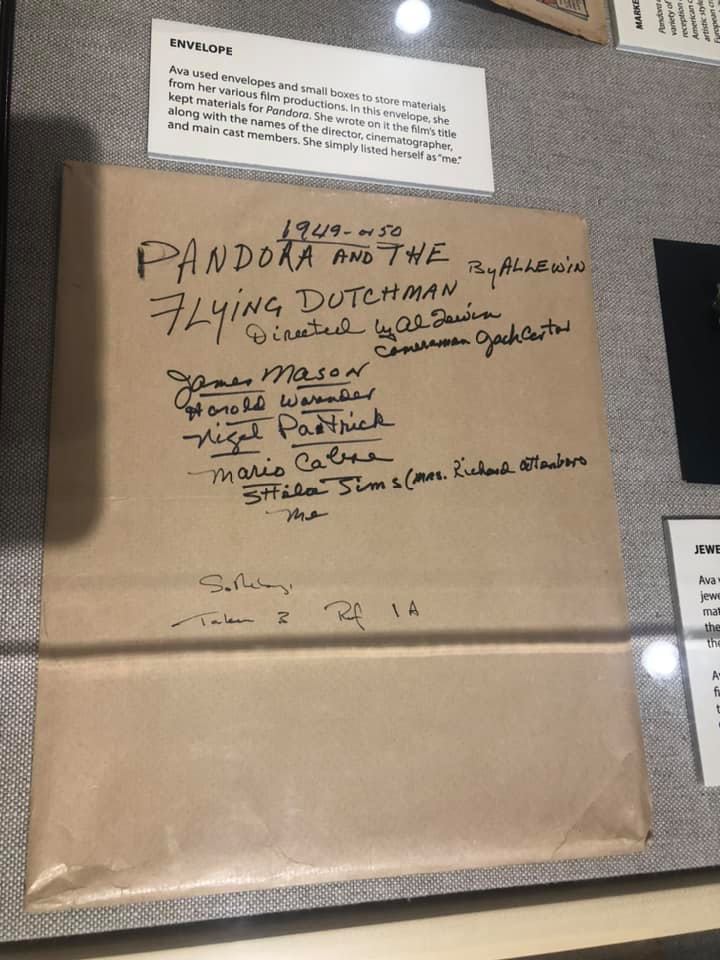 ENVELOPE
Ava used envelopes and small boxes to store materials
from her various film productions. In this envelope, she
kept materials for Pandora. She wrote on it the film's title
along with the names of the director, cinematographer,
and main cast members. She simply listed herself as "me."
MARKE
Pandora
variety of
reception
American c
artistic style
European c
1949-or 50
PANDORA AND THE
By AL LEWIN
FLYING DUTCHMAN
Directed by Al Lewin
Cameraman Jack
James Mason
Harold Warender
Nigel Pactrick
Mario Cabre
Shila Sims (Mrs. Richard Attenboro
Me
Taken 3 Ref 1A
JEWE
Ava
jewe
mat
the
the
A
fi
t